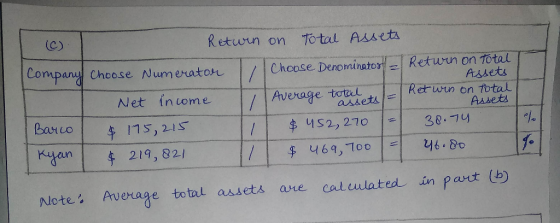 (c) Return on Total Assets
Company Choose Numerator / Choose Denominator = Return on Total Assets
Net income / Average total assets = Return on Total Assets
Barco $ 175,215 / $ 452,270 = 38.74 %
Kyan $ 219,821 / $ 469,700 = 46.80 %
Note: Average total assets are calculated in part (b)